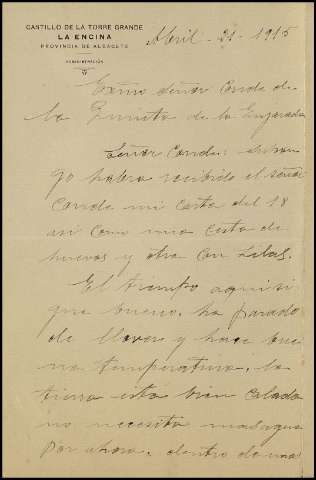 CASTILLO DE LA TORRE GRANDE
LA ENCINA
PROVINCIA DE ALBACETE
ADMINISTRACIÓN
Abril - 21 - 1915
Exmo señor Conde de
la Quinta de la Enjarada
Señor Conde:
go habra recibido el señor
Conde mi carta del 18
asi como una cesta de
huevos y otra con Lilas.
El tiempo aqui si
gue bueno, ha parado
de llover y hace bue
na temperatura, la
tierra esta bien calada
no necesita mas agua
por ahora, dentro de unos